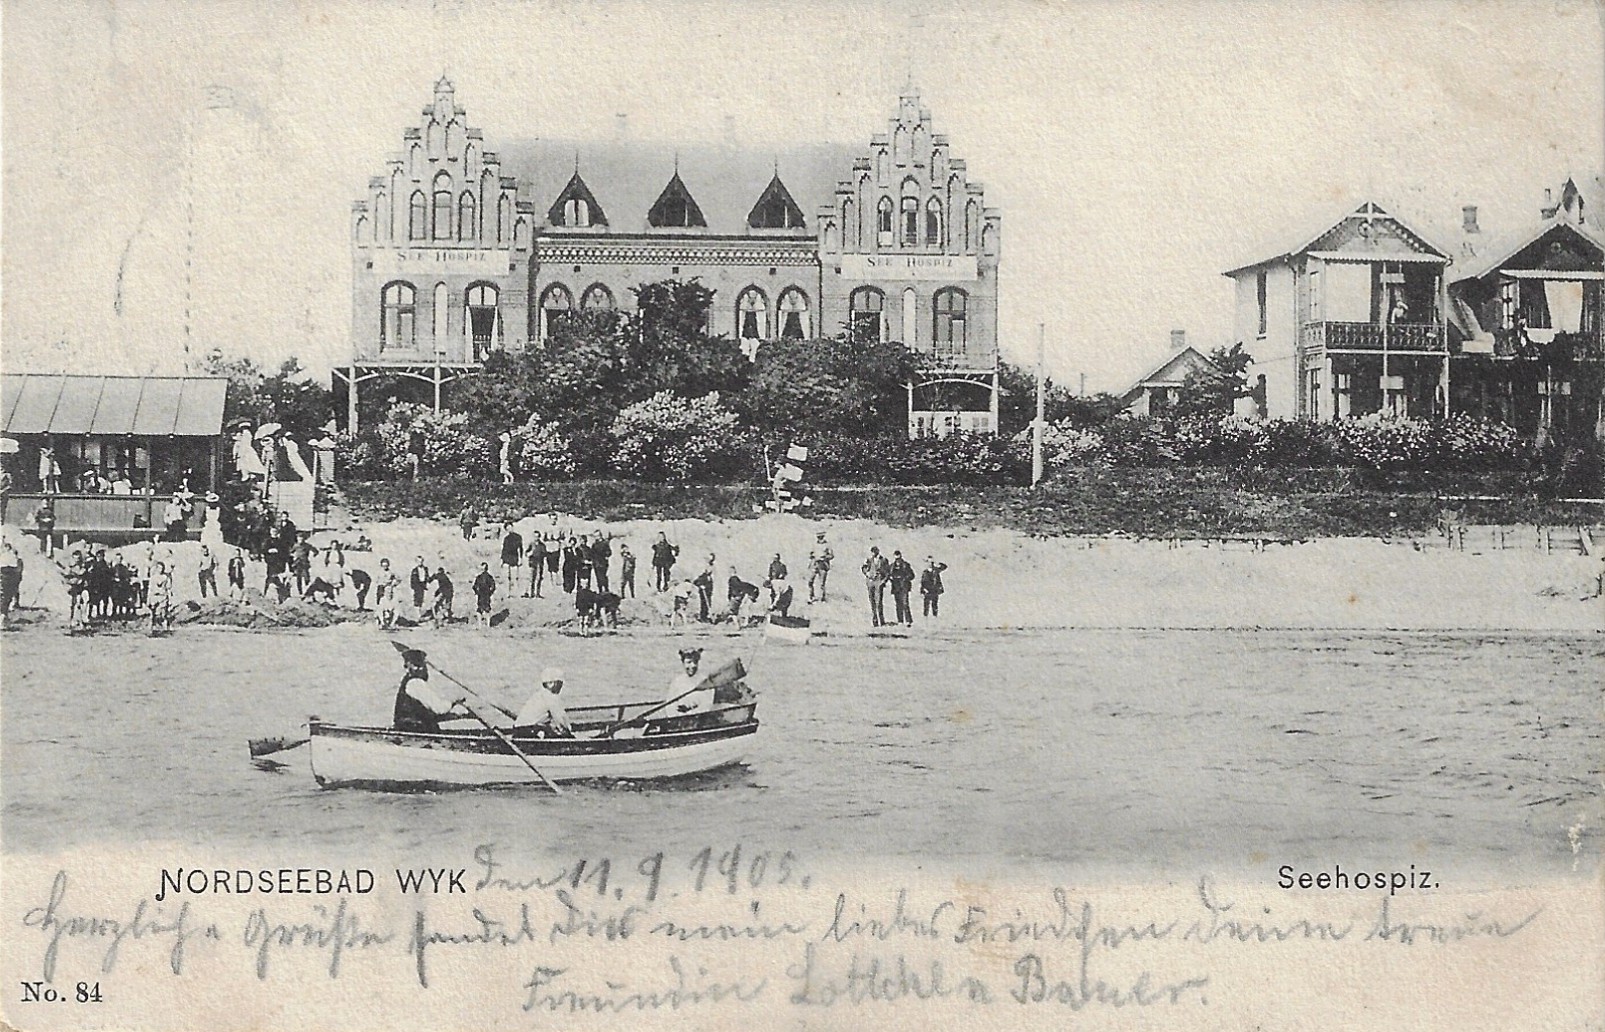 SEE-HOSPIZ
SEE-HOSPIZ
NORDSEEBAD WYK
den 11. 9. 1905.
Seehospiz.
Herzliche Grüße sendet Dir mein liebes Friedchen Deine treue
Freundin Lottchen Bauer.
No. 84